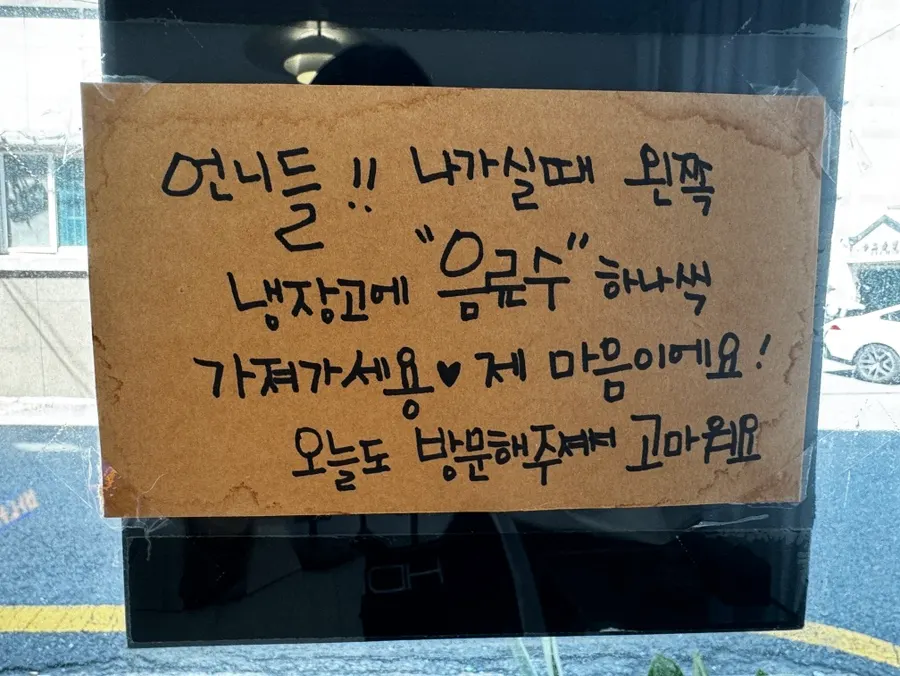 언니들!! 나가실때 왼쪽
냉장고에 "음류수" 하나씩
가져가세용♥ 제 마음이에요!
오늘도 방문해주셔서 고마워요